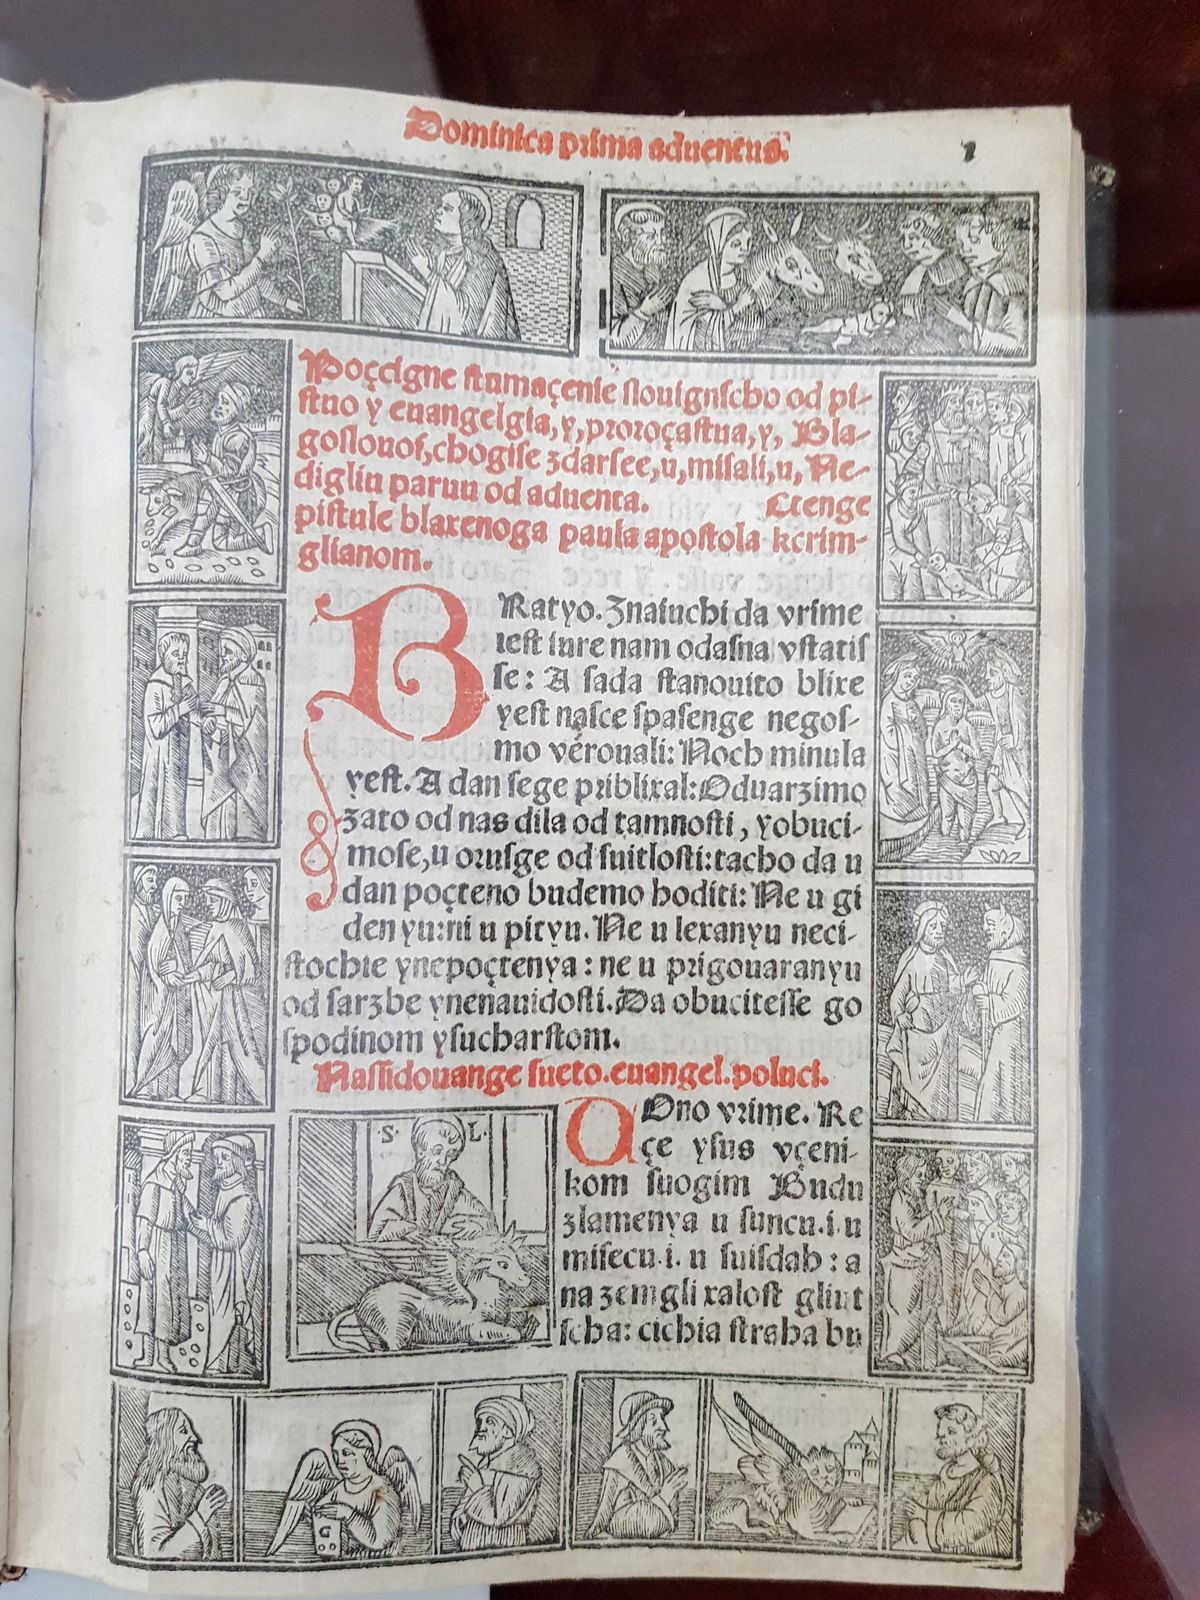 Dominica prima aduentus.
1
Poçcigne stumaçenie slouignscho od pi-
stuo y euangelgia, y, proroçastua, y, Bla-
goslouof, chogise zdarsee, u, misali, u, Ne-
digliu paruu od aduenta. Ctenge
pistule blaxenoga paula apostola kcrim-
glianom.
BRatyo. Znaiuchi da vrime
iest iure nam odasna vstatis
se: A sada stanouito blixe
yest nasce spasenge negos-
mo verouali: Noch minula
yest. A dan sege priblixal: Oduarzimo
zato od nas dila od tamnosti, yobuci-
mose, u orusge od suitlosti: tacho da u
dan poçteno budemo hoditi: Ne u gi
den yu: ni u pityu. Ne u lexanyu neci-
stochie ynepoçtenya: ne u prigouaranyu
od sarzbe ynenauidosti. Da obucitesse go
spodinom ysucharstom.
Nassidouange sueto. euangel. poluci.
·S· L·
UOno vrime. Re
çe ysus vçeni-
kom suogim Budu
zlamenya u suncu. i. u
misecu. i. u suisdah: a
na zemgli xalost gliut
scha: cichia straha bu
G